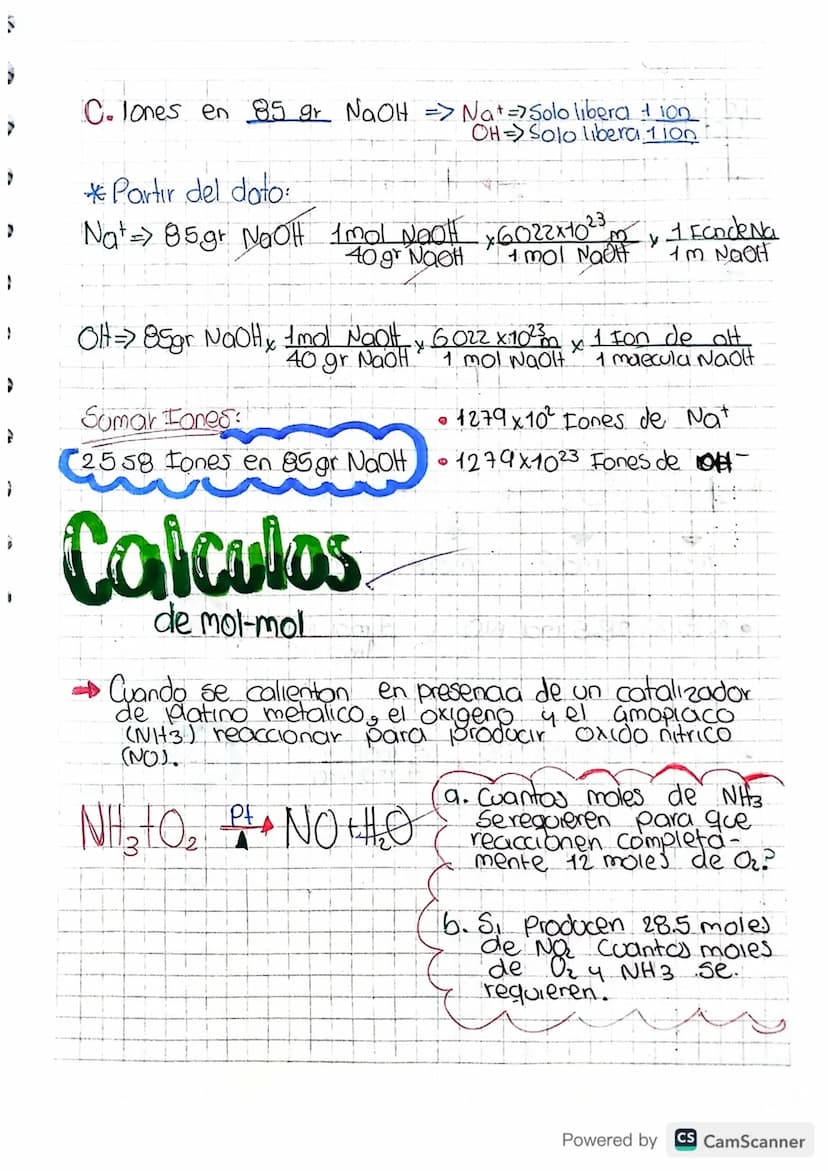 C. Iones en 85 gr NaOH => Na⁺=> Solo libera 1 ion
OH=> Solo libera 1 ion
* Partir del dato:
Na⁺=> 85gr NaOH 1mol NaOH x 6022x10²³ m x 1 Ion de Na
40 gr NaOH 1 mol NaOH 1 m NaOH
OH=> 85gr NaOH x 1mol NaOH x 6022 x10²³ m x 1 Ion de OH
40 gr NaOH 1 mol NaOH 1 molecula NaOH
Sumar Iones: • 1279x10² Iones de Na⁺
2558 Iones en 85gr NaOH • 1279x10²³ Iones de OH⁻
Calculos
de mol-mol
→ Cuando se calienton en presencia de un catalizador
de platino metalico, el oxigeno y el amopiaco
(NH3) reaccionar para producir oxido nitrico
(NO).
NH₃+O₂ Pt → NO+H₂O
a. Cuantos moles de NH3
se requieren para que
reaccionen completa-
mente 12 moles de O₂?
b. Si Producen 28.5 moles
de NO₂ Cuantos moles
de O₂ y NH3 se.
requieren.
Powered by CS CamScanner